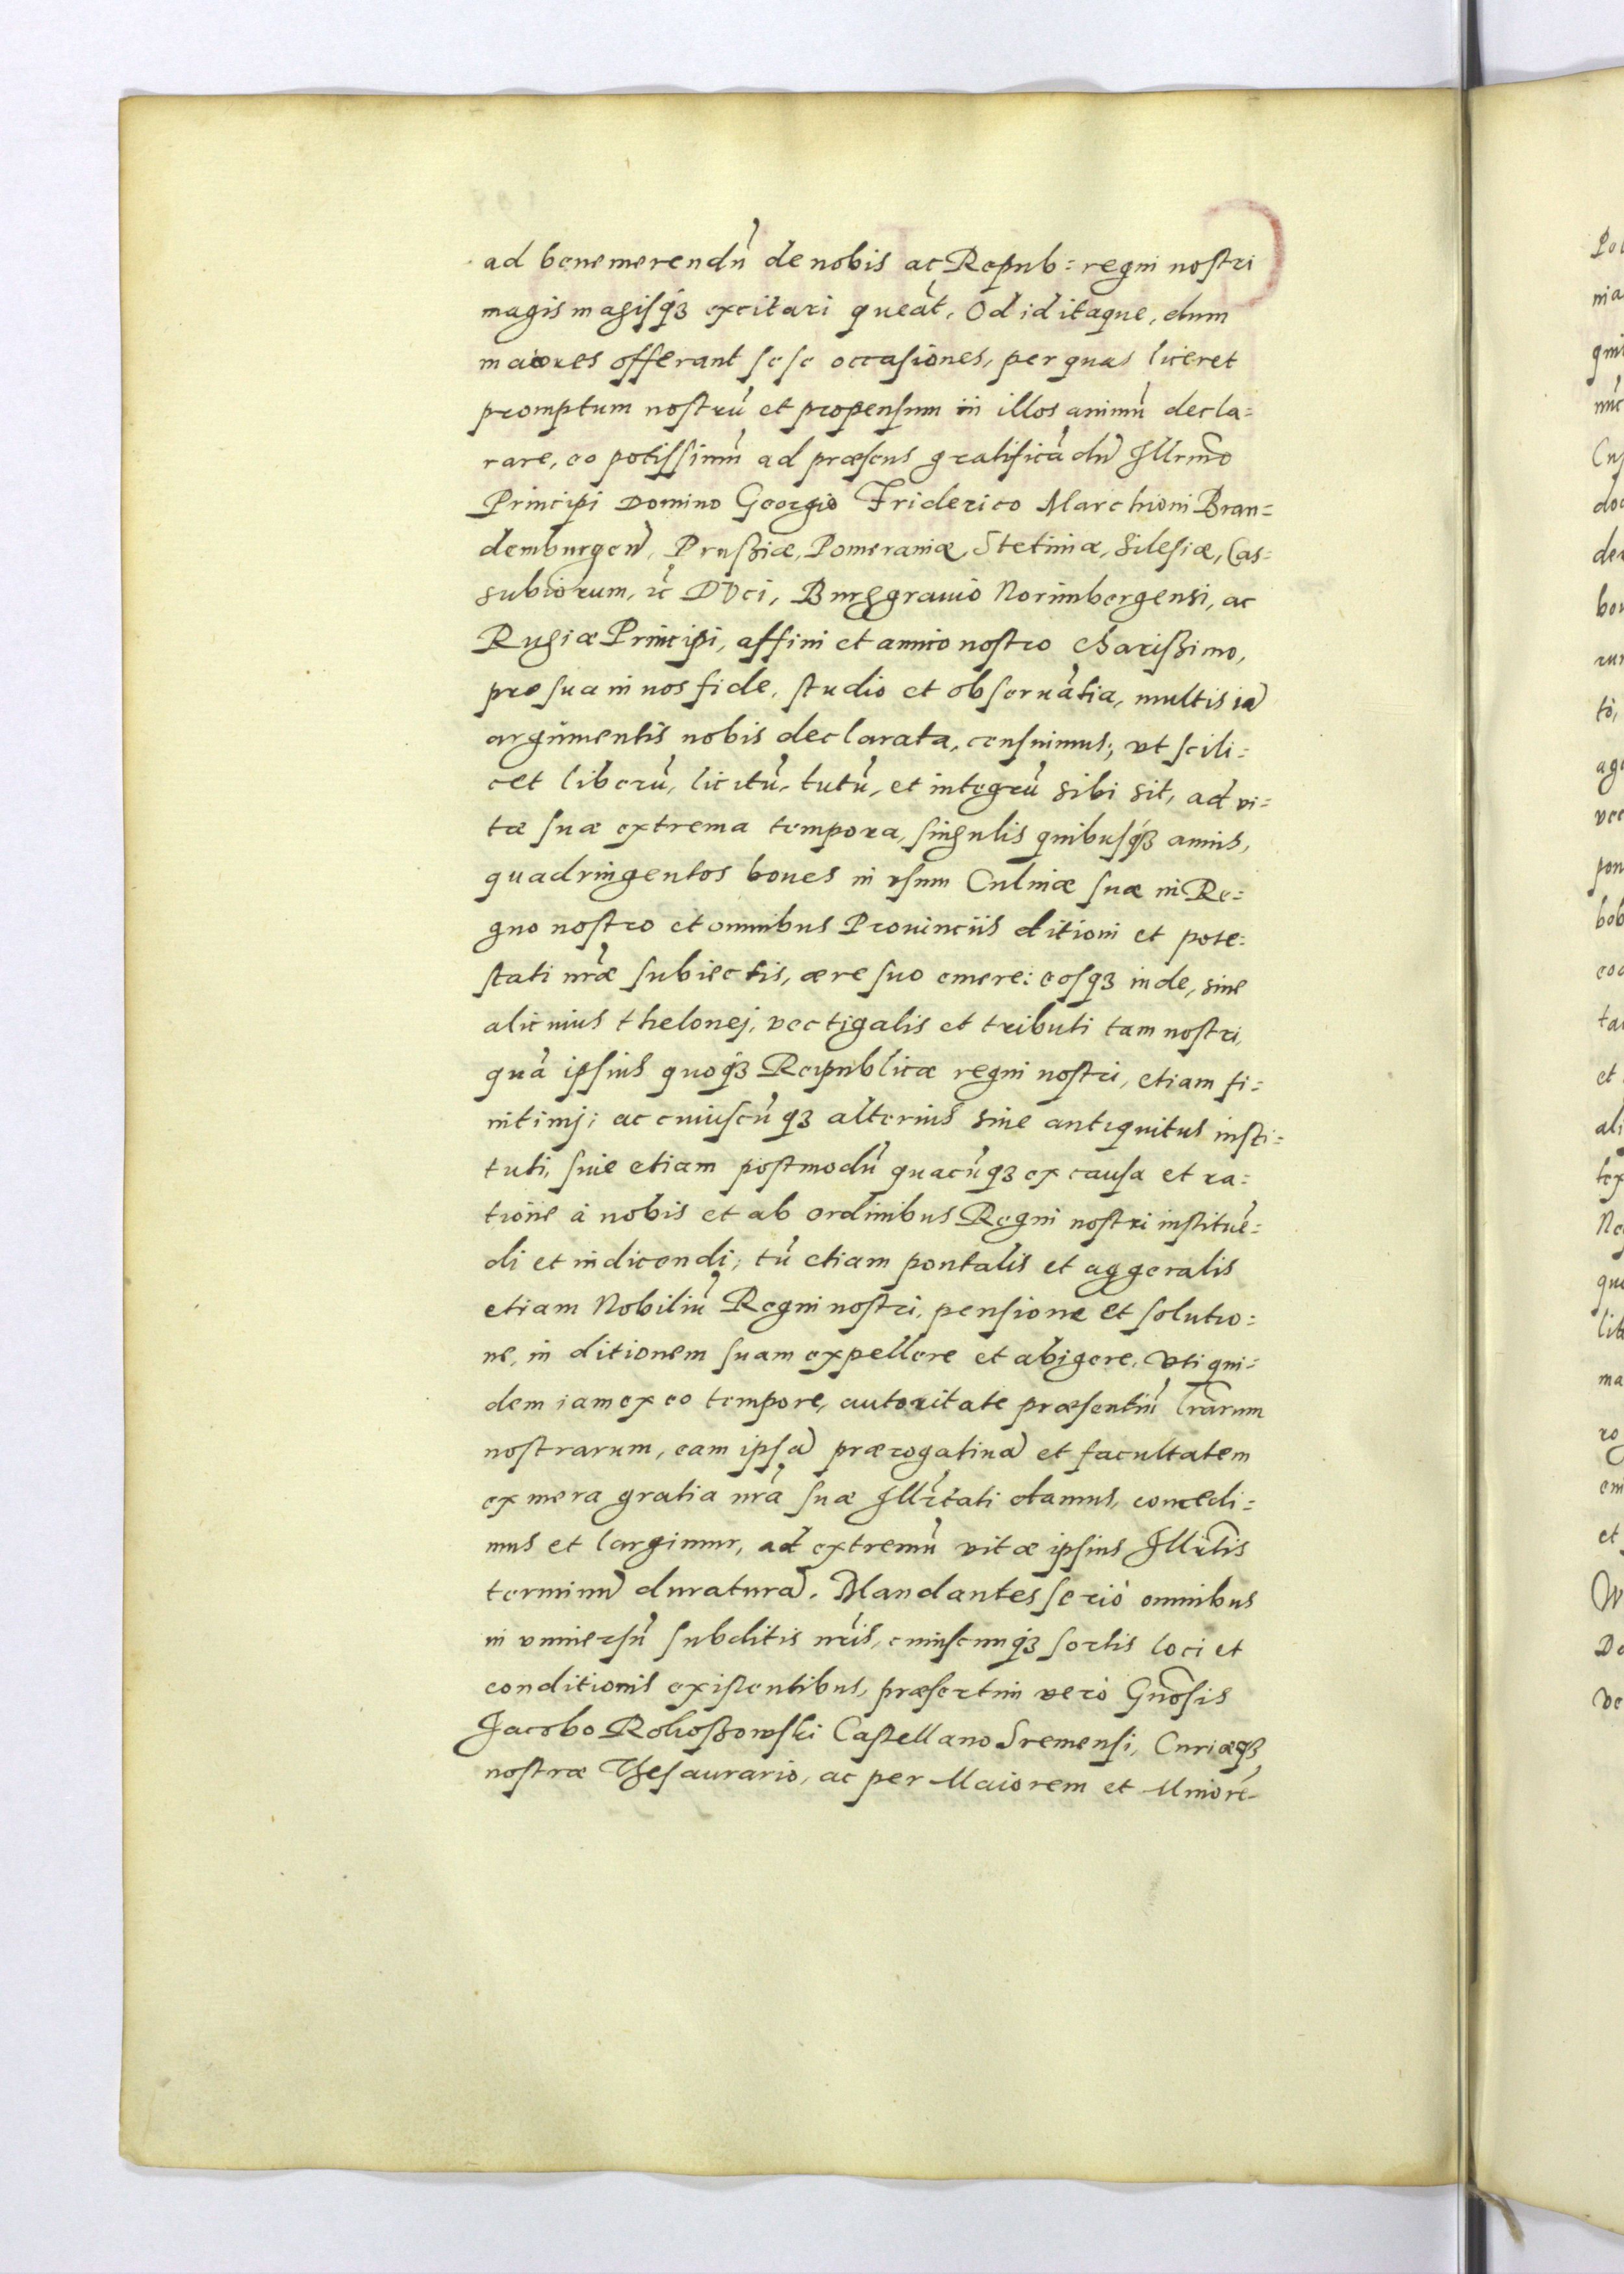 ad benemerendũ de nobis ac Repub: regni nostri
magis magisq́ꝫ excitari queãt. Od id itaque, dum
maiores offerant sese occasiones, per quas liceret
promptum nostrũ et propensum in illos animũ decla=
rare, eo potissimũ ad præsens gratificãdũ Illrmo
Principi Domino Georgio Friderico Marchioni Bran=
demburgeñ, Prußiæ, Pomeraniæ, Stetiniæ, Silesiæ, Cas=
subiorum, ꝛc̃ DVci, Burggrauio Norimbergensi, ac
Rugiæ Principi, affini et amico nostro charißimo,
pro sua in nos fide, studio et obseruãtia, multis iã
argumentis nobis declarata, censuimus; vt scili=
cet liberũ, licitũ, tutũ, et integrũ sibi sit, ad vi=
tæ suæ extrema tempora, singulis quibusq́ꝫ annis,
quadringentos boues in vsum Culinæ suæ in Re=
gno nostro et omnibus Prouinciis ditioni et pote=
stati nr̃æ subiectis, ære suo emere: eosqꝫ inde, sine
alicuius thelonej, vectigalis et tributi tam nostri,
quã ipsius quoq́ꝫ Reipublicæ regni nostri, etiam fi=
nitimj; ac cuiuscũqꝫ alterius siue antiquitus insti=
tuti, siue etiam postmodũ quacũqꝫ ex causa et ra=
tione à nobis et ab ordinibus Regni nostri instituẽ=
di et indicendi; tũ etiam pontalis et aggeralis
etiam Nobiliũ Regni nostri, pensione et solutio=
ne, in ditionem suam expellere et abigere. Vti qui=
dem iam ex eo tempore, autoritate præsentiũ lr̃arum
nostrarum, eam ipsã prærogatiuã et facultatem
ex mera gratia nr̃a suæ Illr̃tati damus, concedi=
mus et largimur, ad extremũ vitæ ipsius Illr̃tis
terminũ duraturã. Mandantes seriò omnibus
in vniuersũ subditis nr̃is, cuiuscunq́ꝫ sortis loci et
conditionis existentibus, præsertim verò Gnõsis
Jacobo Rokoßowski Castellano Sremensi, Curiæqꝫ
nostræ Thesaurario, ac per Maiorem et Minorẽ